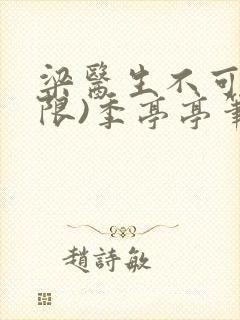 梁醫生不可
限)季亭亭筆
趙詩敏